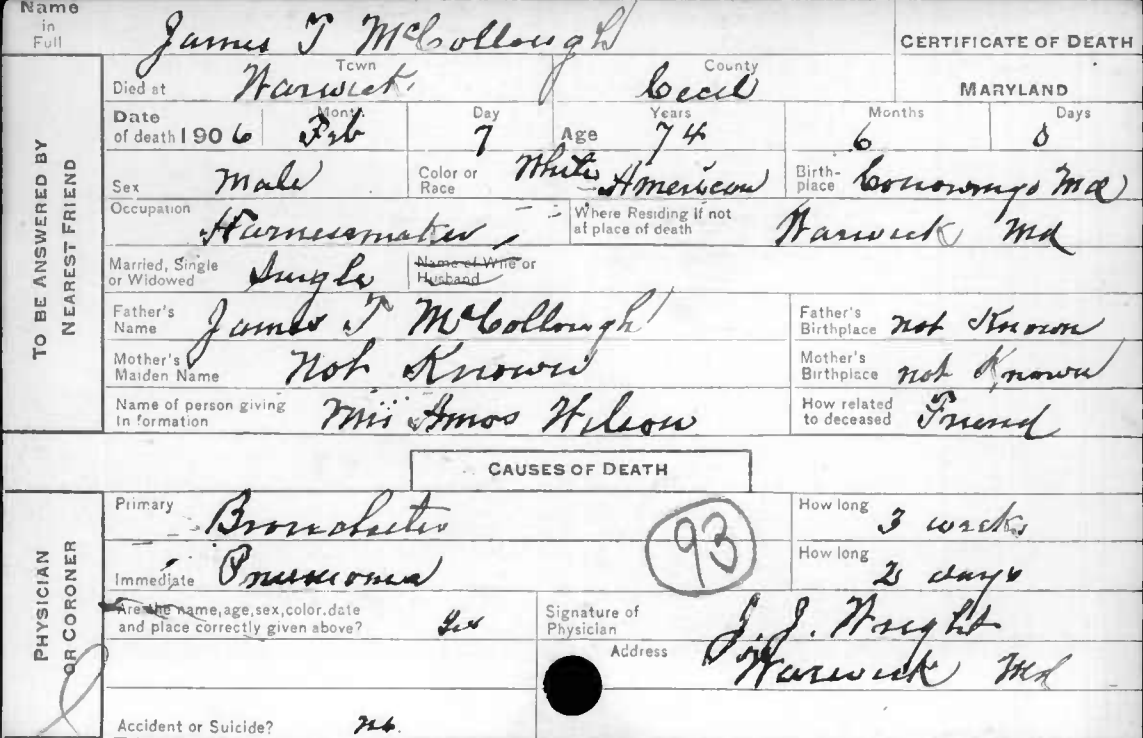 Name in Full James T McCollough CERTIFICATE OF DEATH
Died at Town Warwick County Cecil MARYLAND
Date of death 1906 Month Feb Day 7 Age Years 74 Months 6 Days 0
Sex Male Color or Race White American Birthplace Conowingo Md
Occupation Harnessmaker Where Residing if not at place of death Warwick Md
Married, Single or Widowed Single Name of Wife or Husband
Father's Name James T McCollough Father's Birthplace not Known
Mother's Maiden Name Not Known Mother's Birthplace not Known
Name of person giving Information Amos Wilson How related to deceased Friend
TO BE ANSWERED BY NEAREST FRIEND
CAUSES OF DEATH
Primary Bronchitis 93 How long 3 weeks
Immediate Pneumonia How long 2 days
Are the name, age, sex, color. date and place correctly given above? Yes Signature of Physician J. J. Wright
Address Warwick Md
Accident or Suicide? No.
PHYSICIAN OR CORONER